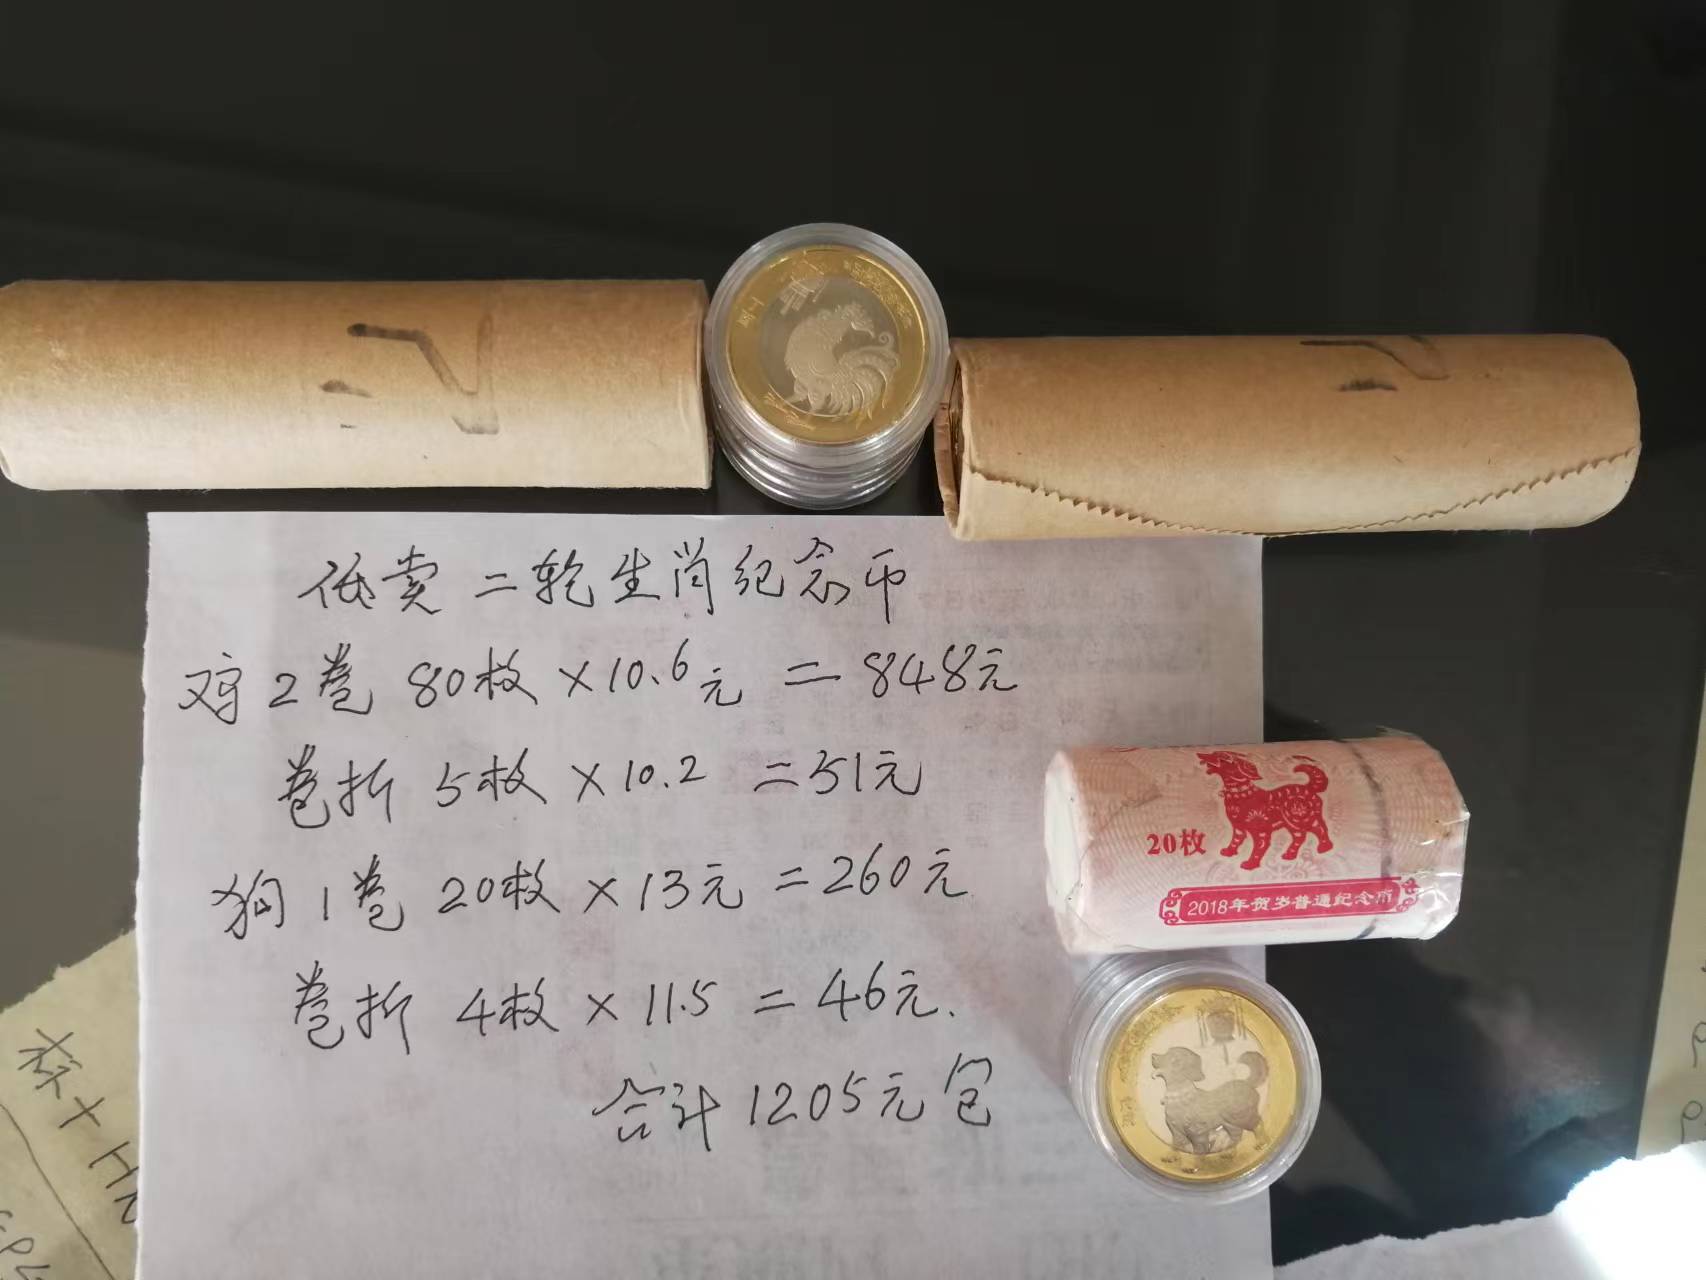 低卖二轮生肖纪念币
鸡2卷 80枚×10.6元=848元
卷折 5枚×10.2=51元
狗1卷 20枚×13元=260元
卷折 4枚×11.5=46元.
合计1205元包
20枚
2018年贺岁普通纪念币